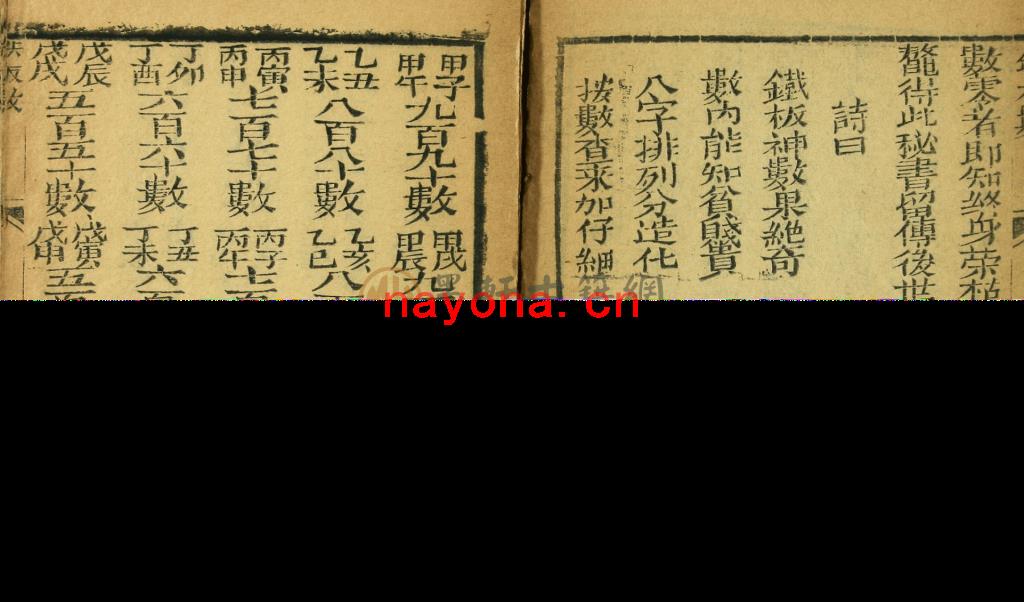 數零者即知終身荣枯
鰲得此秘書留傳後世
詩曰
鐵板神數果絶奇
數內能知貧賤貴
八字排列分造化
挨數查来加仔細
甲子
甲午
九百九十數
甲戌
甲辰
九
乙丑
乙未
八百八十數
乙亥
乙巳
八百
丙寅
丙申
七百七十數
丙子
丙午
七百
丁卯
丁酉
六百六十數
丁丑
丁未
六百
戊辰
戊戌
五百五十數
戊寅
戊申
五百
nayona. cn